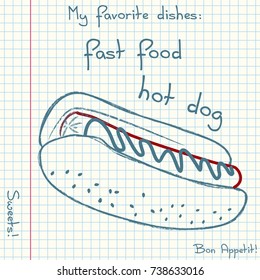 My favorite dishes:
fast food
hot dog
Sweets!
Bon Appetit!
shutterstock.com · 738633016